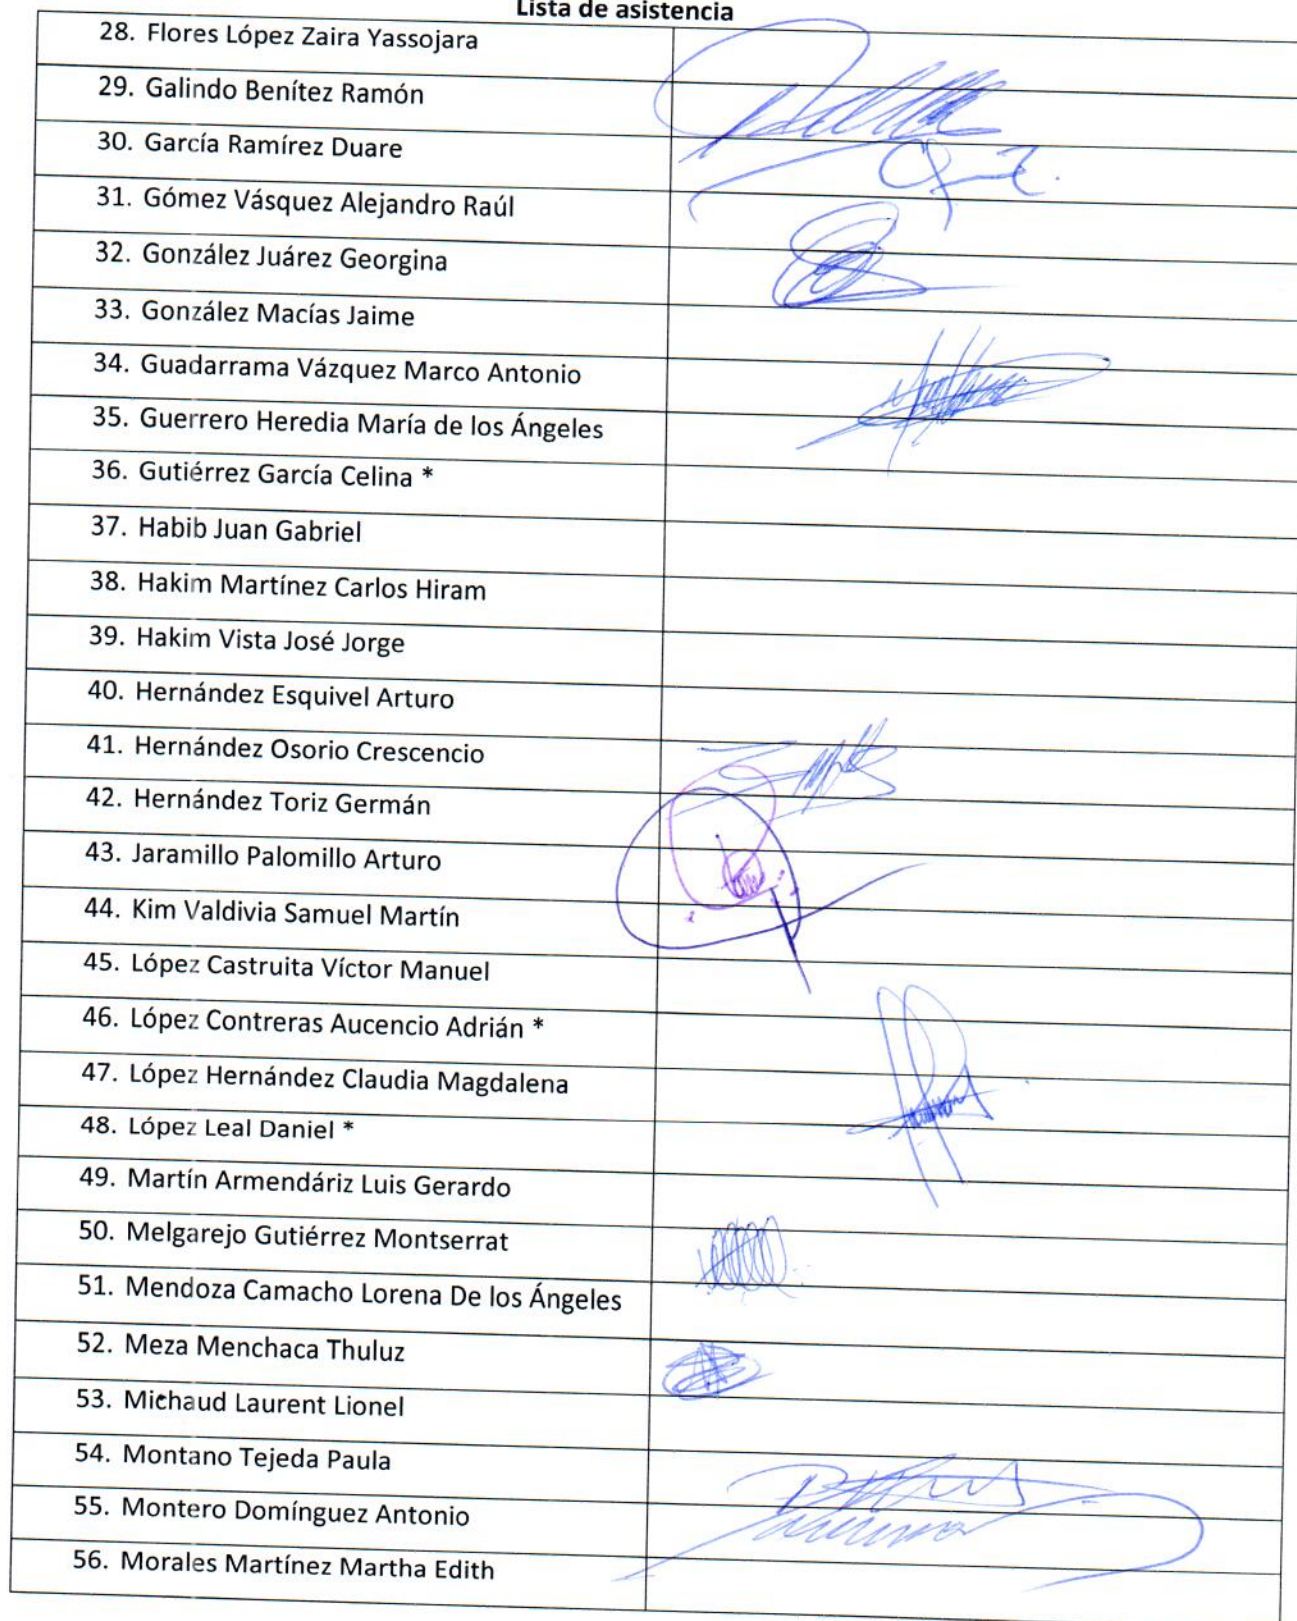 Lista de asistencia
28. Flores López Zaira Yassojara
29. Galindo Benítez Ramón
30. García Ramírez Duare
31. Gómez Vásquez Alejandro Raúl
32. González Juárez Georgina
33. González Macías Jaime
34. Guadarrama Vázquez Marco Antonio
35. Guerrero Heredia María de los Ángeles
36. Gutiérrez García Celina *
37. Habib Juan Gabriel
38. Hakim Martínez Carlos Hiram
39. Hakim Vista José Jorge
40. Hernández Esquivel Arturo
41. Hernández Osorio Crescencio
42. Hernández Toriz Germán
43. Jaramillo Palomillo Arturo
44. Kim Valdivia Samuel Martín
45. López Castruita Víctor Manuel
46. López Contreras Aucencio Adrián *
47. López Hernández Claudia Magdalena
48. López Leal Daniel *
49. Martín Armendáriz Luis Gerardo
50. Melgarejo Gutiérrez Montserrat
51. Mendoza Camacho Lorena De los Ángeles
52. Meza Menchaca Thuluz
53. Michaud Laurent Lionel
54. Montano Tejeda Paula
55. Montero Domínguez Antonio
56. Morales Martínez Martha Edith